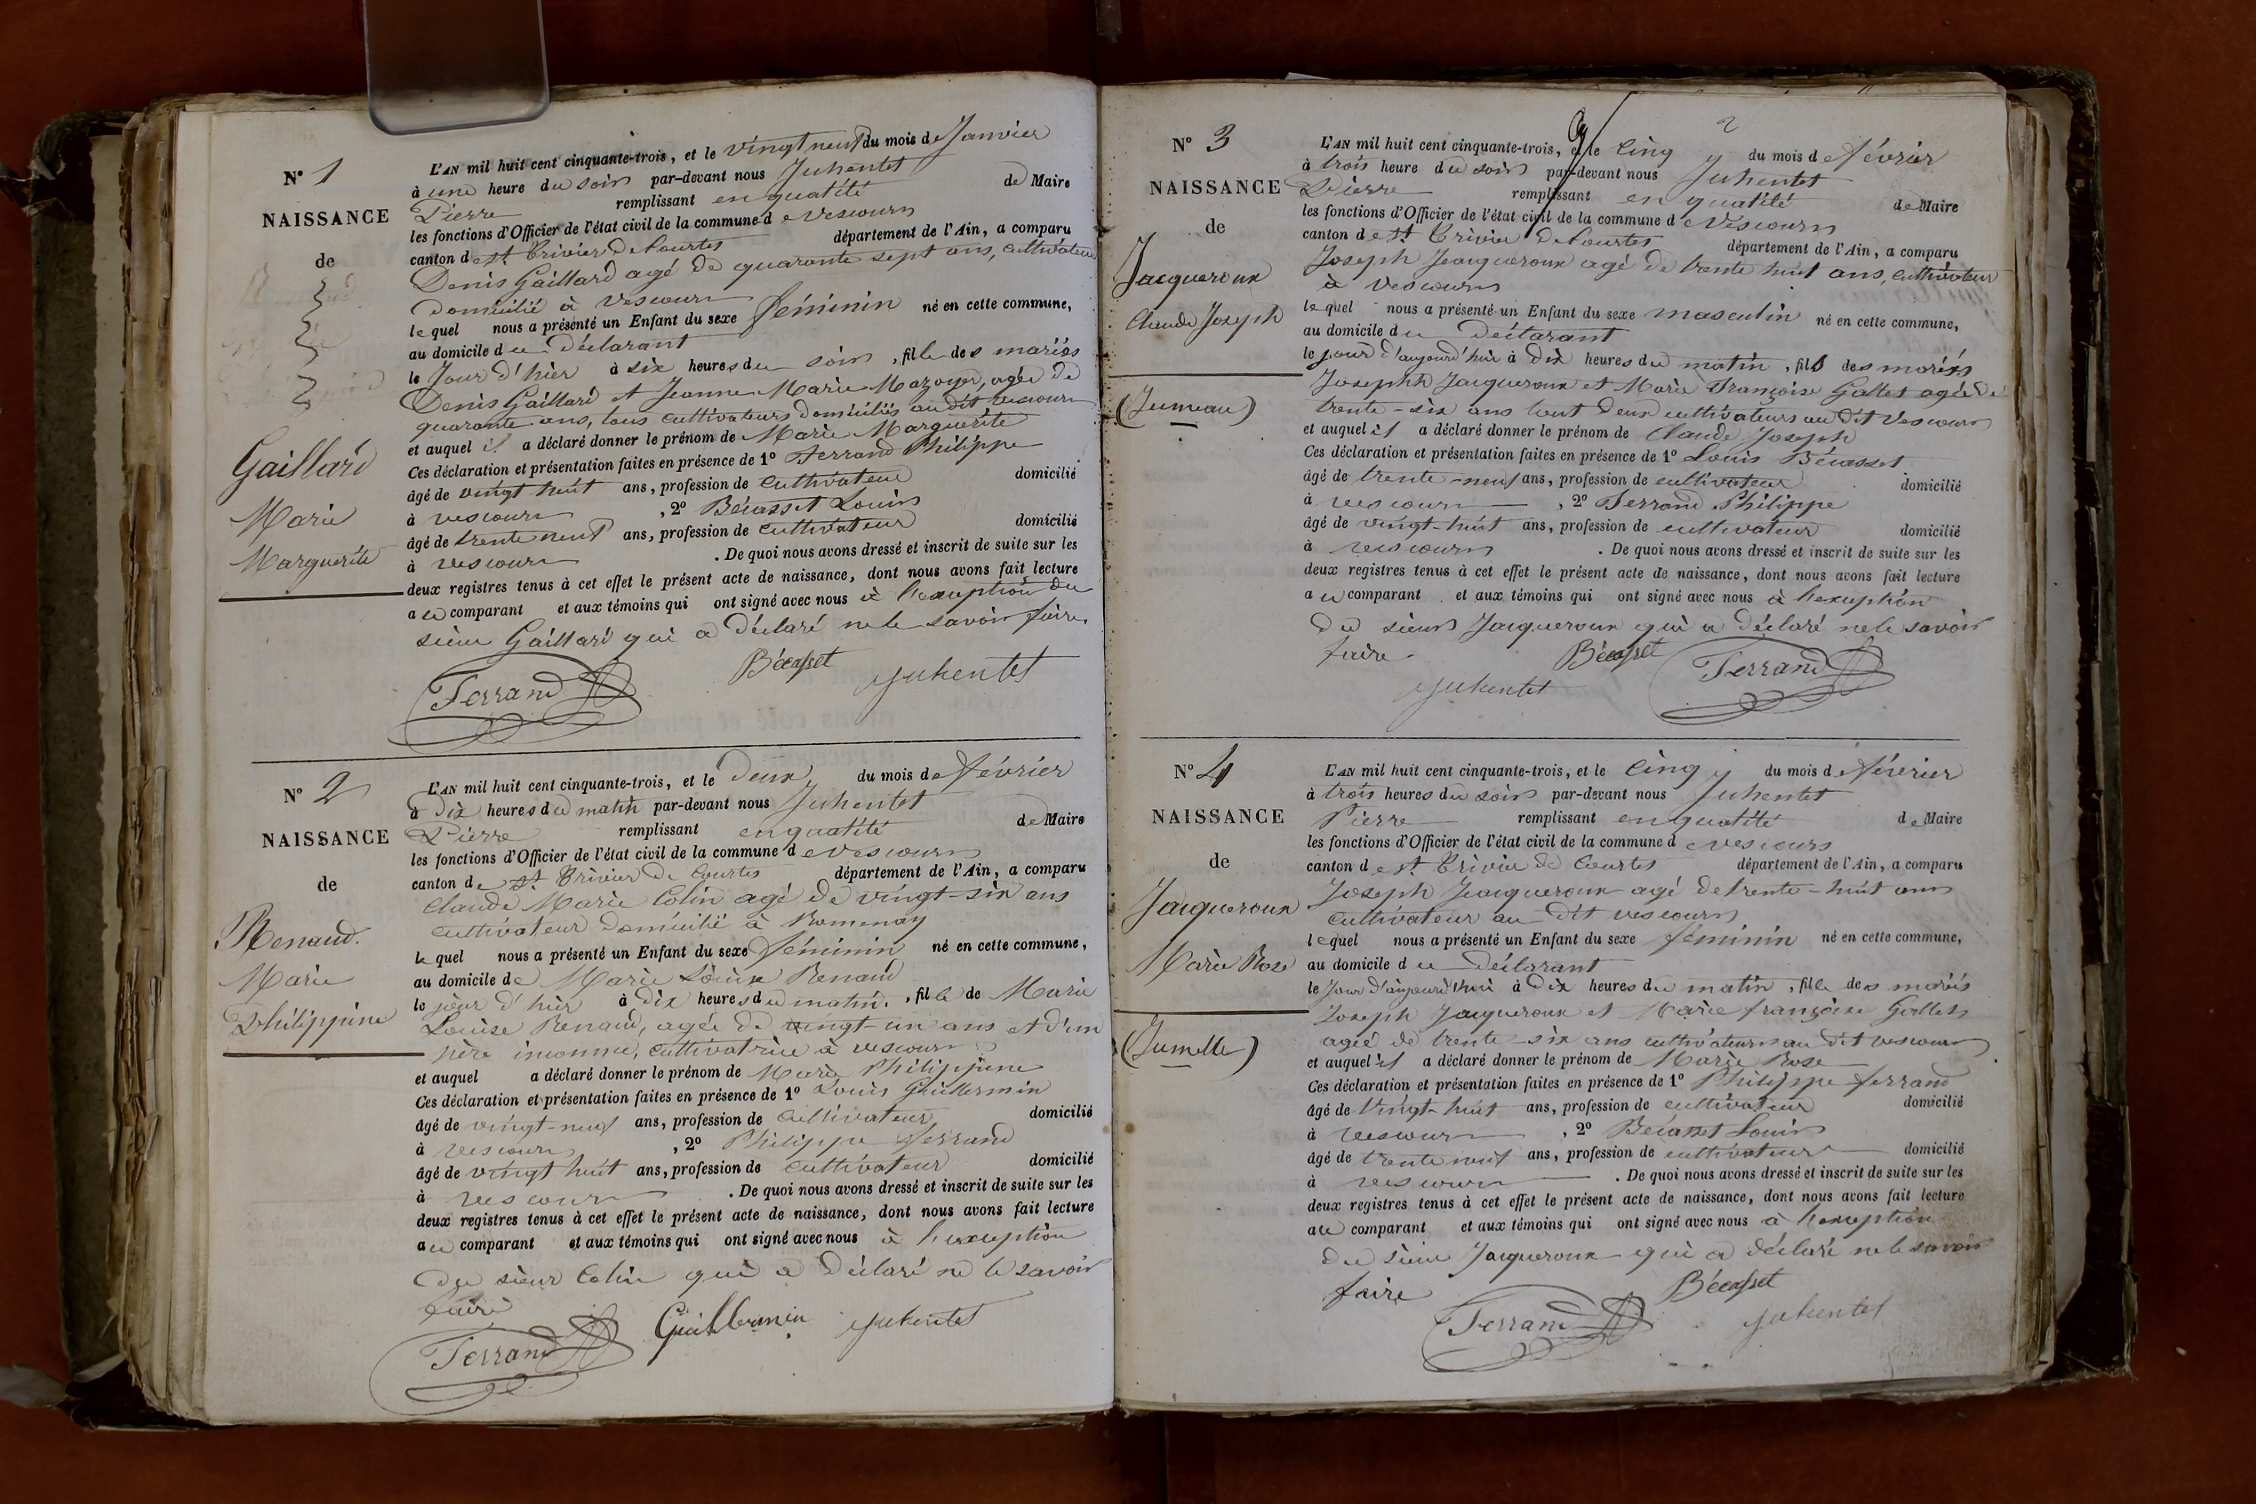 N° 1
NAISSANCE
de
Gaillard
Marie
Marguerite
L'AN mil huit cent cinquante-trois, et le vingt neuf du mois de Janvier
à une heure du soir par-devant nous Juhentet
Pierre remplissant en qualité de Maire
les fonctions d'Officier de l'état civil de la commune de Vescours
canton de St Trivier de Courtes département de l'Ain, a comparu
Denis Gaillard agé de quarante sept ans, cultivateur
domicilié à Vescours
lequel nous a présenté un Enfant du sexe féminin né en cette commune,
au domicile du déclarant
le Jour d'hier à six heures du soir, fille des mariés
Denis Gaillard et Jeanne Marie Mazoyer, agée de
quarante ans, tous cultivateurs domiciliés au dit vescours
et auquel il a déclaré donner le prénom de Marie Marguerite
Ces déclaration et présentation faites en présence de 1° Ferrand Philippe
âgé de vingt huit ans, profession de cultivateur domicilié
à vescours, 2° Bécasset Louis
âgé de trente neuf ans, profession de cultivateur domicilié
à vescours. De quoi nous avons dressé et inscrit de suite sur les
deux registres tenus à cet effet le présent acte de naissance, dont nous avons fait lecture
au comparant et aux témoins qui ont signé avec nous à l'exception du
sieur Gaillard qui a déclaré ne le savoir faire.
Ferrand Bécasset Juhentet
N° 2
NAISSANCE
de
Renaud.
Marie
Philippine
L'AN mil huit cent cinquante-trois, et le deux du mois de février
à dix heures du matin par-devant nous Juhentet
Pierre remplissant en qualité de Maire
les fonctions d'Officier de l'état civil de la commune de vescours
canton de St Trivier de Courtes département de l'Ain, a comparu
Claude Marie Colin agé de vingt-six ans
cultivateur domicilié à Romenay
lequel nous a présenté un Enfant du sexe féminin né en cette commune,
au domicile de Marie Louise Renaud
le jour d'hier à dix heures du matin, fille de Marie
Louise Renaud, agée de vingt-un ans et d'un
père inconnu, cultivatrice à vescours
et auquel a déclaré donner le prénom de Marie Philippine
Ces déclaration et présentation faites en présence de 1° Louis Guillermin
âgé de vingt-neuf ans, profession de cultivateur domicilié
à vescours, 2° Philippe ferrand
âgé de vingt huit ans, profession de cultivateur domicilié
à vescours. De quoi nous avons dressé et inscrit de suite sur les
deux registres tenus à cet effet le présent acte de naissance, dont nous avons fait lecture
au comparant et aux témoins qui ont signé avec nous à l'exception
du sieur Colin qui a déclaré ne le savoir
faire
Ferrand Guillermin Juhentet
2
N° 3
NAISSANCE
de
Jacqueroux
Claude Joseph
(Jumeau)
L'AN mil huit cent cinquante-trois, et le cinq du mois de février
à trois heure du soir par-devant nous Juhentet
Pierre remplissant en qualité de Maire
les fonctions d'Officier de l'état civil de la commune de Vescours
canton de St Trivier de Courtes département de l'Ain, a comparu
Joseph Jacqueroux agé de trente huit ans, cultivateur
à Vescours
lequel nous a présenté un Enfant du sexe masculin né en cette commune,
au domicile du déclarant
le jour d'aujourd'hui à dix heures du matin, fils des mariés
Joseph Jacqueroux et Marie Françoise Gallet agée de
trente-six ans tout deux cultivateurs au dit Vescours
et auquel il a déclaré donner le prénom de Claude Joseph
Ces déclaration et présentation faites en présence de 1° Louis Bécasset
âgé de trente-neuf ans, profession de cultivateur domicilié
à vescours, 2° Ferrand Philippe
âgé de vingt-huit ans, profession de cultivateur domicilié
à vescours. De quoi nous avons dressé et inscrit de suite sur les
deux registres tenus à cet effet le présent acte de naissance, dont nous avons fait lecture
au comparant et aux témoins qui ont signé avec nous à l'exception
du sieur Jacqueroux qui a déclaré ne le savoir
faire. Bécasset Ferrand
Juhentet
N° 4
NAISSANCE
de
Jacqueroux
Marie Rose
(Jumelle)
L'AN mil huit cent cinquante-trois, et le cinq du mois de février
à trois heures du soir par-devant nous Juhentet
Pierre remplissant en qualité de Maire
les fonctions d'Officier de l'état civil de la commune de vescours
canton de St Trivier de Courtes département de l'Ain, a comparu
Joseph Jacqueroux agé de trente-huit ans
cultivateur au dit vescours
lequel nous a présenté un Enfant du sexe féminin né en cette commune,
au domicile du déclarant
le Jour d'aujourd'hui à dix heures du matin, fille des mariés
Joseph Jacqueroux et Marie françoise Gallet
agée de trente-six ans cultivateurs au dit vescours
et auquel il a déclaré donner le prénom de Marie Rose
Ces déclaration et présentation faites en présence de 1° Philippe ferrand
âgé de vingt-huit ans, profession de cultivateur domicilié
à vescours, 2° Bécasset Louis
âgé de trente neuf ans, profession de cultivateur domicilié
à vescours. De quoi nous avons dressé et inscrit de suite sur les
deux registres tenus à cet effet le présent acte de naissance, dont nous avons fait lecture
au comparant et aux témoins qui ont signé avec nous à l'exception
du sieur Jacqueroux qui a déclaré ne le savoir
faire Bécasset
Ferrand Juhentet